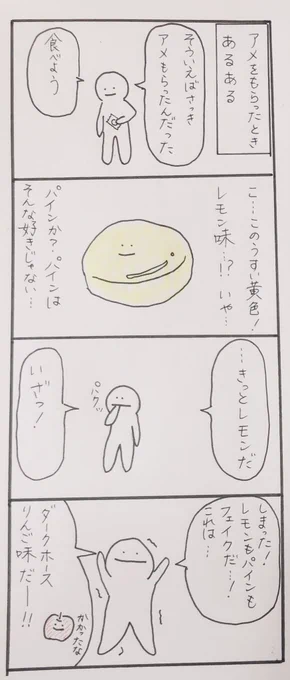 アメをもらったとき
あるある
そういえばさっき
アメもらったんだった
食べよう
こ…このうすい黄色!
レモン味…!? いや…
パインか?パインは
そんな好きじゃない…
…きっとレモンだ
パクッ
いざっ!
しまった!
レモンもパインも
フェイクだ…!
これは…
ダークホース
りんご味だー!!
かかったな